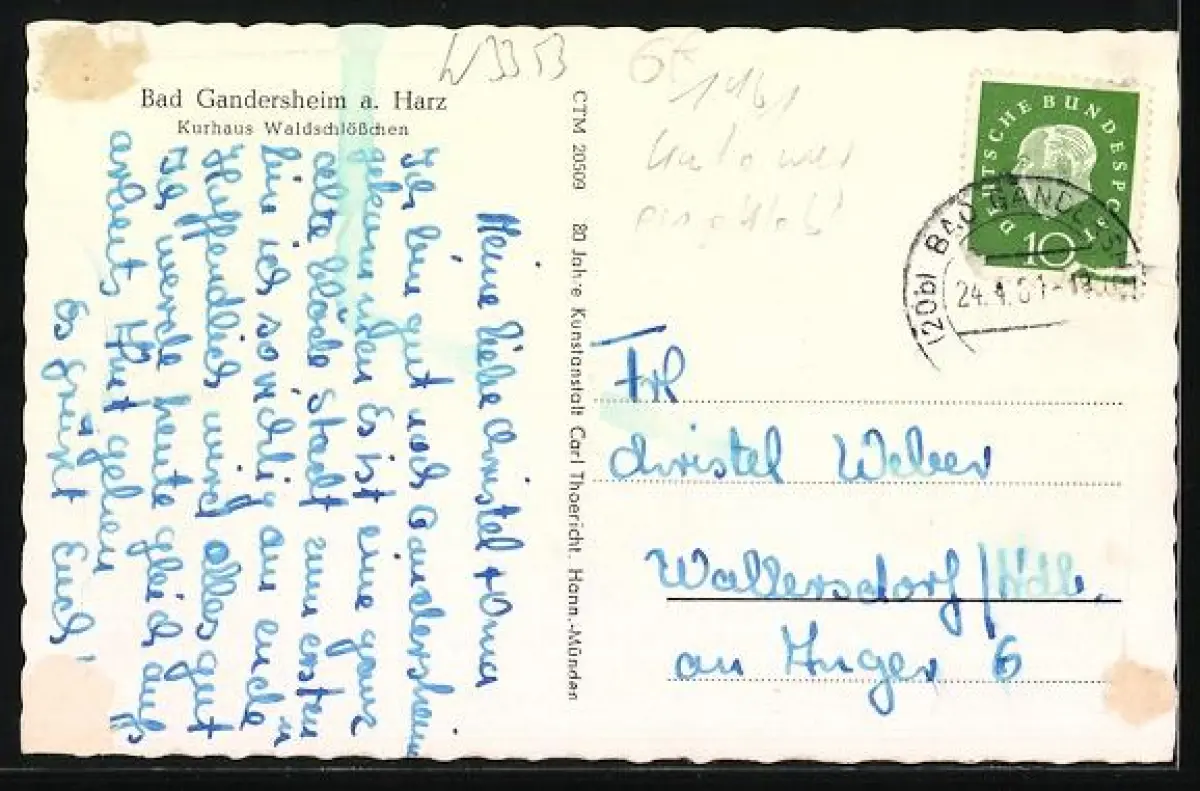 W3353
Bad Gandersheim a. Harz
Kurhaus Waldschlößchen
Meine liebe Christel + Oma
Ich bin gut nach Gandersheim
gekommen Es ist eine ganz
alte blöde Stadt zum ersten
bin ich so
Hoffendlich wird alles gut
Ich werde heute gleich aufs
arbeits Amt gehen
Es grüßt Euch!
CTM 20509 80 Jahre Kunstanstalt Carl Thoericht, Hann.-Münden
DEUTSCHE BUNDESPOST
10
(20b) BAD GANDERSHEIM
24.4.61-18
Frl
Christel Weber
Wallersdorf/Ndb.
am Anger 6